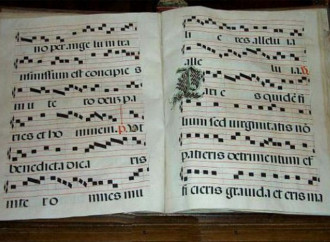 no per ange lum tra
nsmissum est concipie s
in u te ro deus pa
ries et ho minem. Vt
benedicta dica ris
inte ro mnes mu
li e res allelu ia
alle lu ia.
Parie s quidē fi
lium sed virginitatis nō
patieris detrimentum ef
fi cieris gravida et eris ma